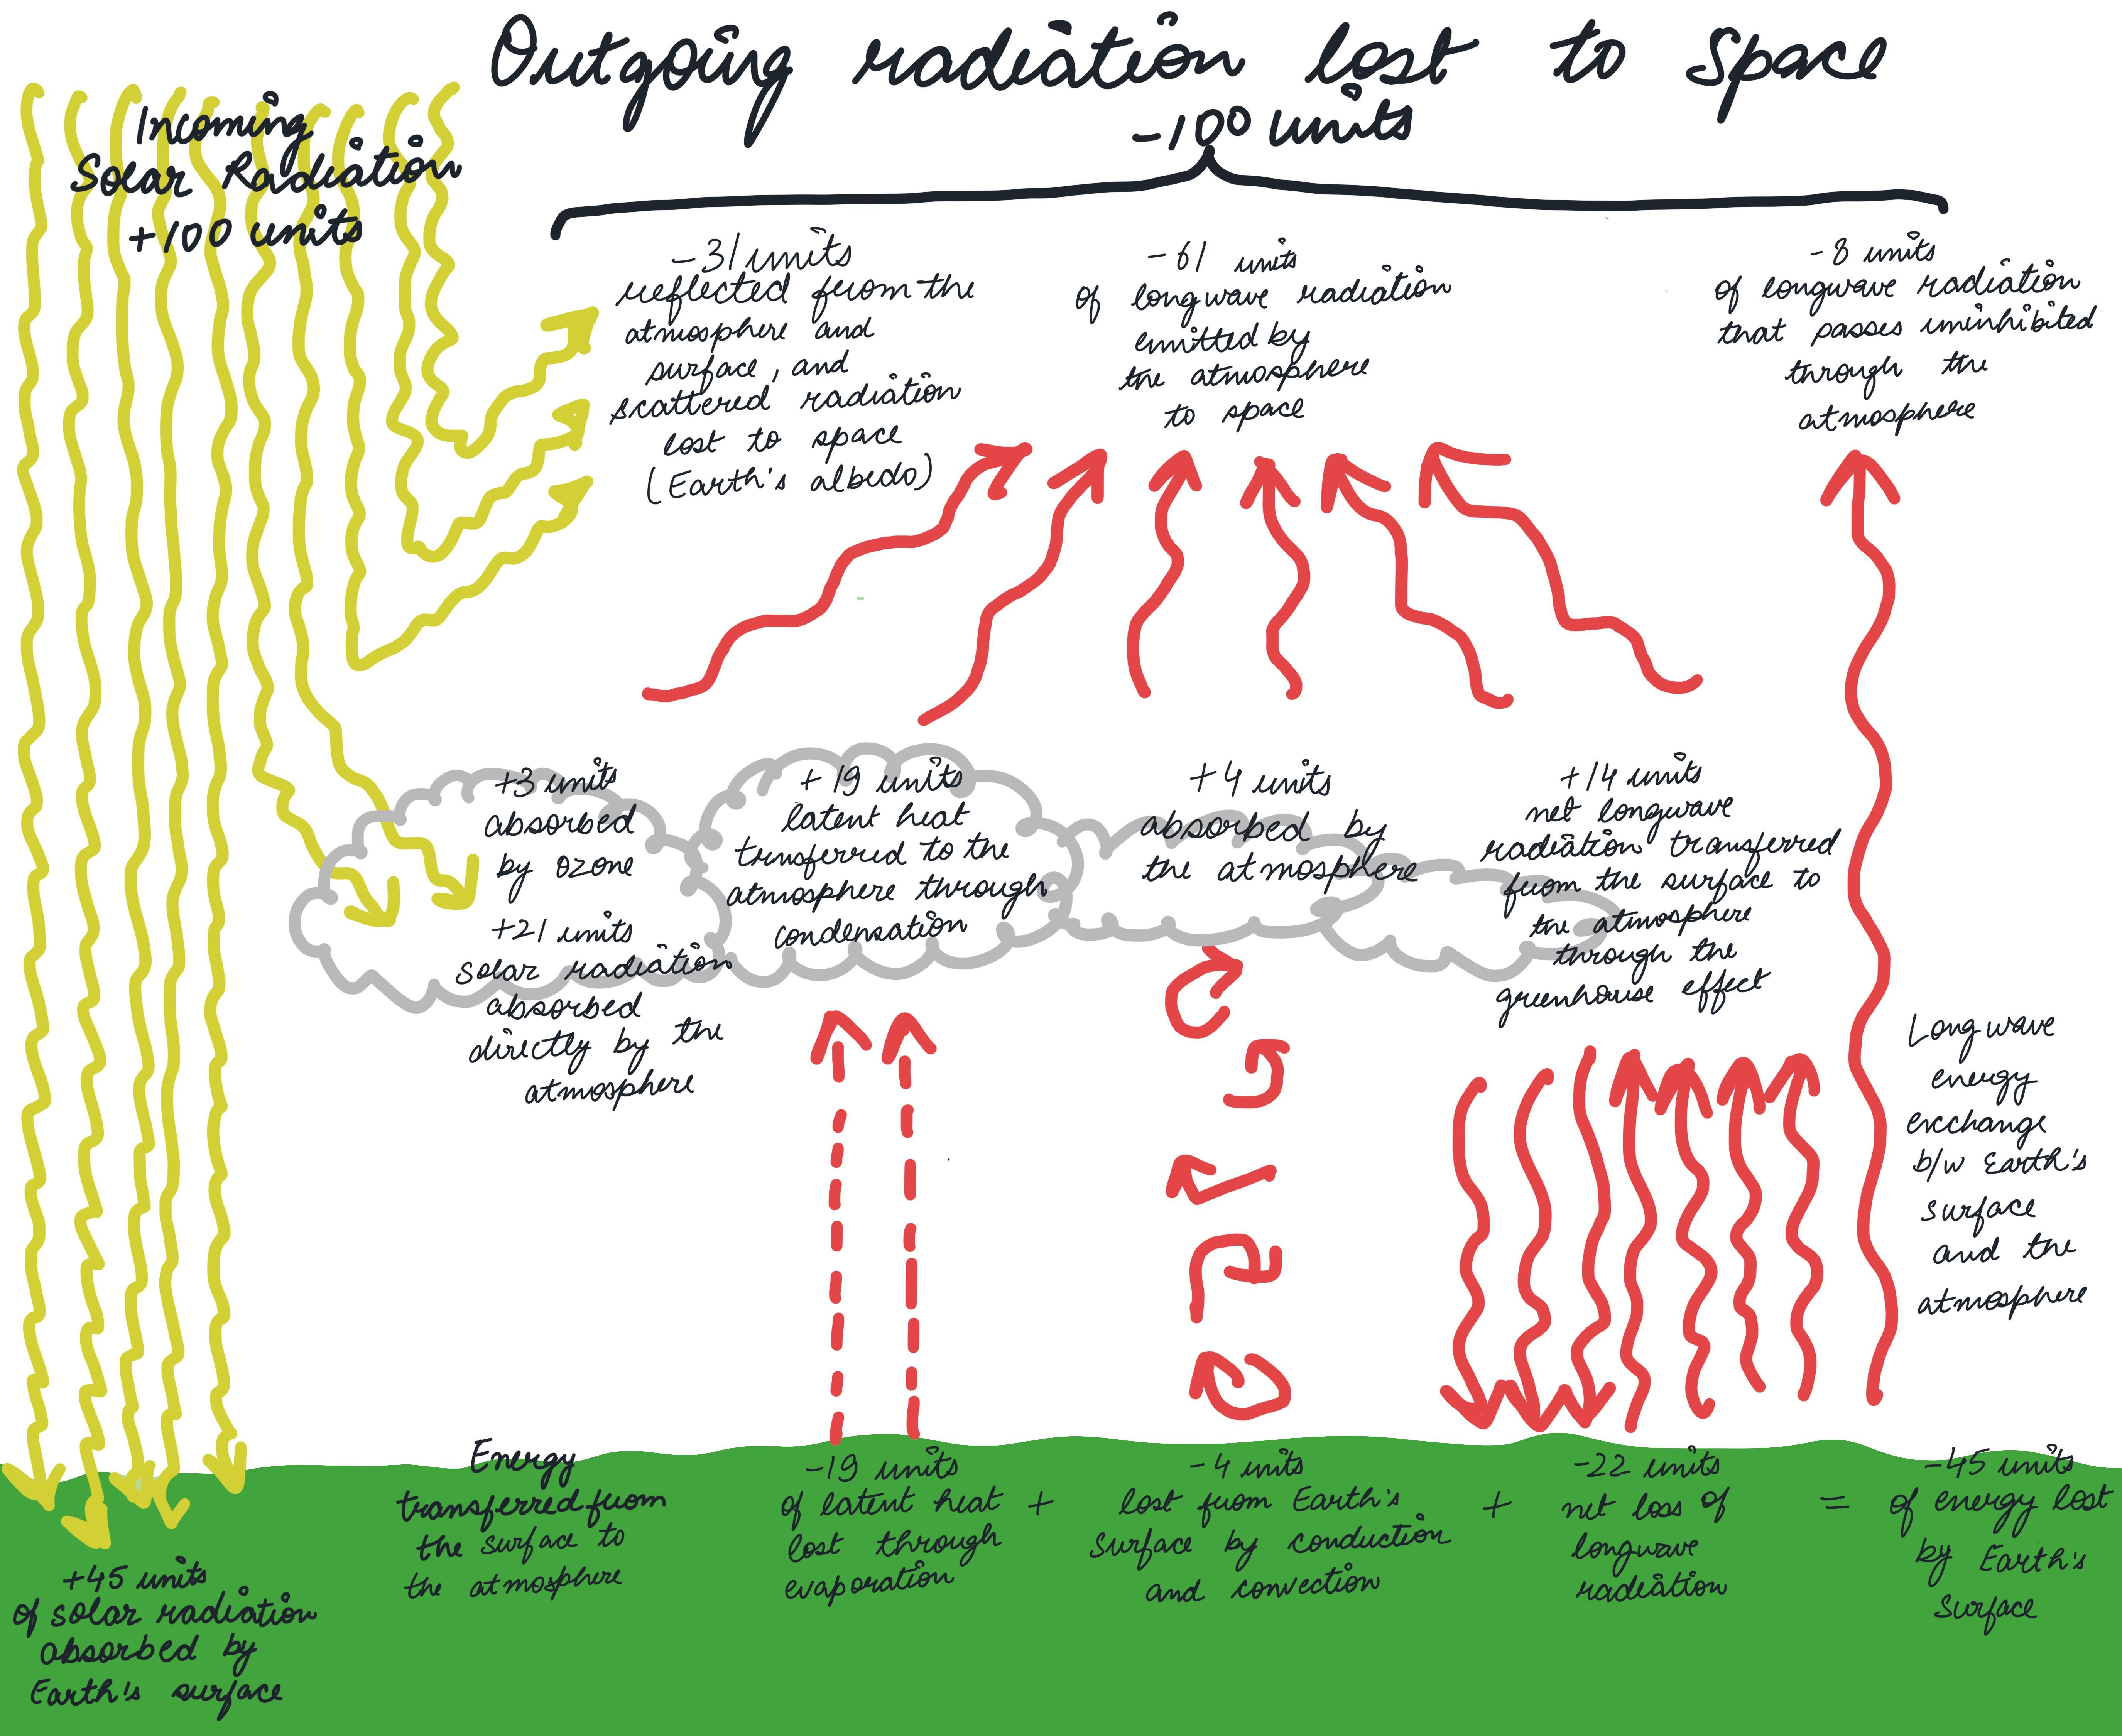 Outgoing radiation lost to Space
-100 units
Incoming
Solar Radiation
+100 units
-31 units
reflected from the
atmosphere and
surface, and
scattered radiation
lost to space
(Earth's albedo)
-61 units
of longwave radiation
emitted by
the atmosphere
to space
-8 units
of longwave radiation
that passes uninhibited
through the
atmosphere
+3 units
absorbed
by ozone
+21 units
solar radiation
absorbed
directly by the
atmosphere
+19 units
latent heat
transferred to the
atmosphere through
condensation
+4 units
absorbed by
the atmosphere
+14 units
net longwave
radiation transferred
from the surface to
the atmosphere
through the
greenhouse effect
Long wave
energy
exchange
b/w Earth's
surface
and the
atmosphere
+45 units
of solar radiation
absorbed by
Earth's surface
Energy
transferred from
the surface to
the atmosphere
-19 units
of latent heat
lost through
evaporation
+
-4 units
lost from Earth's
Surface by conduction
and convection
+
-22 units
net loss of
longwave
radiation
=
-45 units
of energy lost
by Earth's
Surface